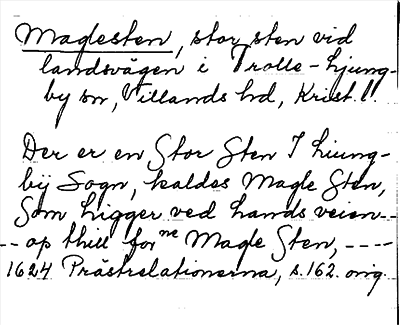 Maglesten, stor sten vid
landsvägen i Trolle-Ljung-
by sn, Villands hd, Krist. l.
Der er en Stor Sten I Liung-
bÿ Sogn, kaldes Magle Sten,
Som ligger ved Lands veien--
-- op thill for ne Magle Sten, ----
1624 Prästrelationerna, s. 162. orig.